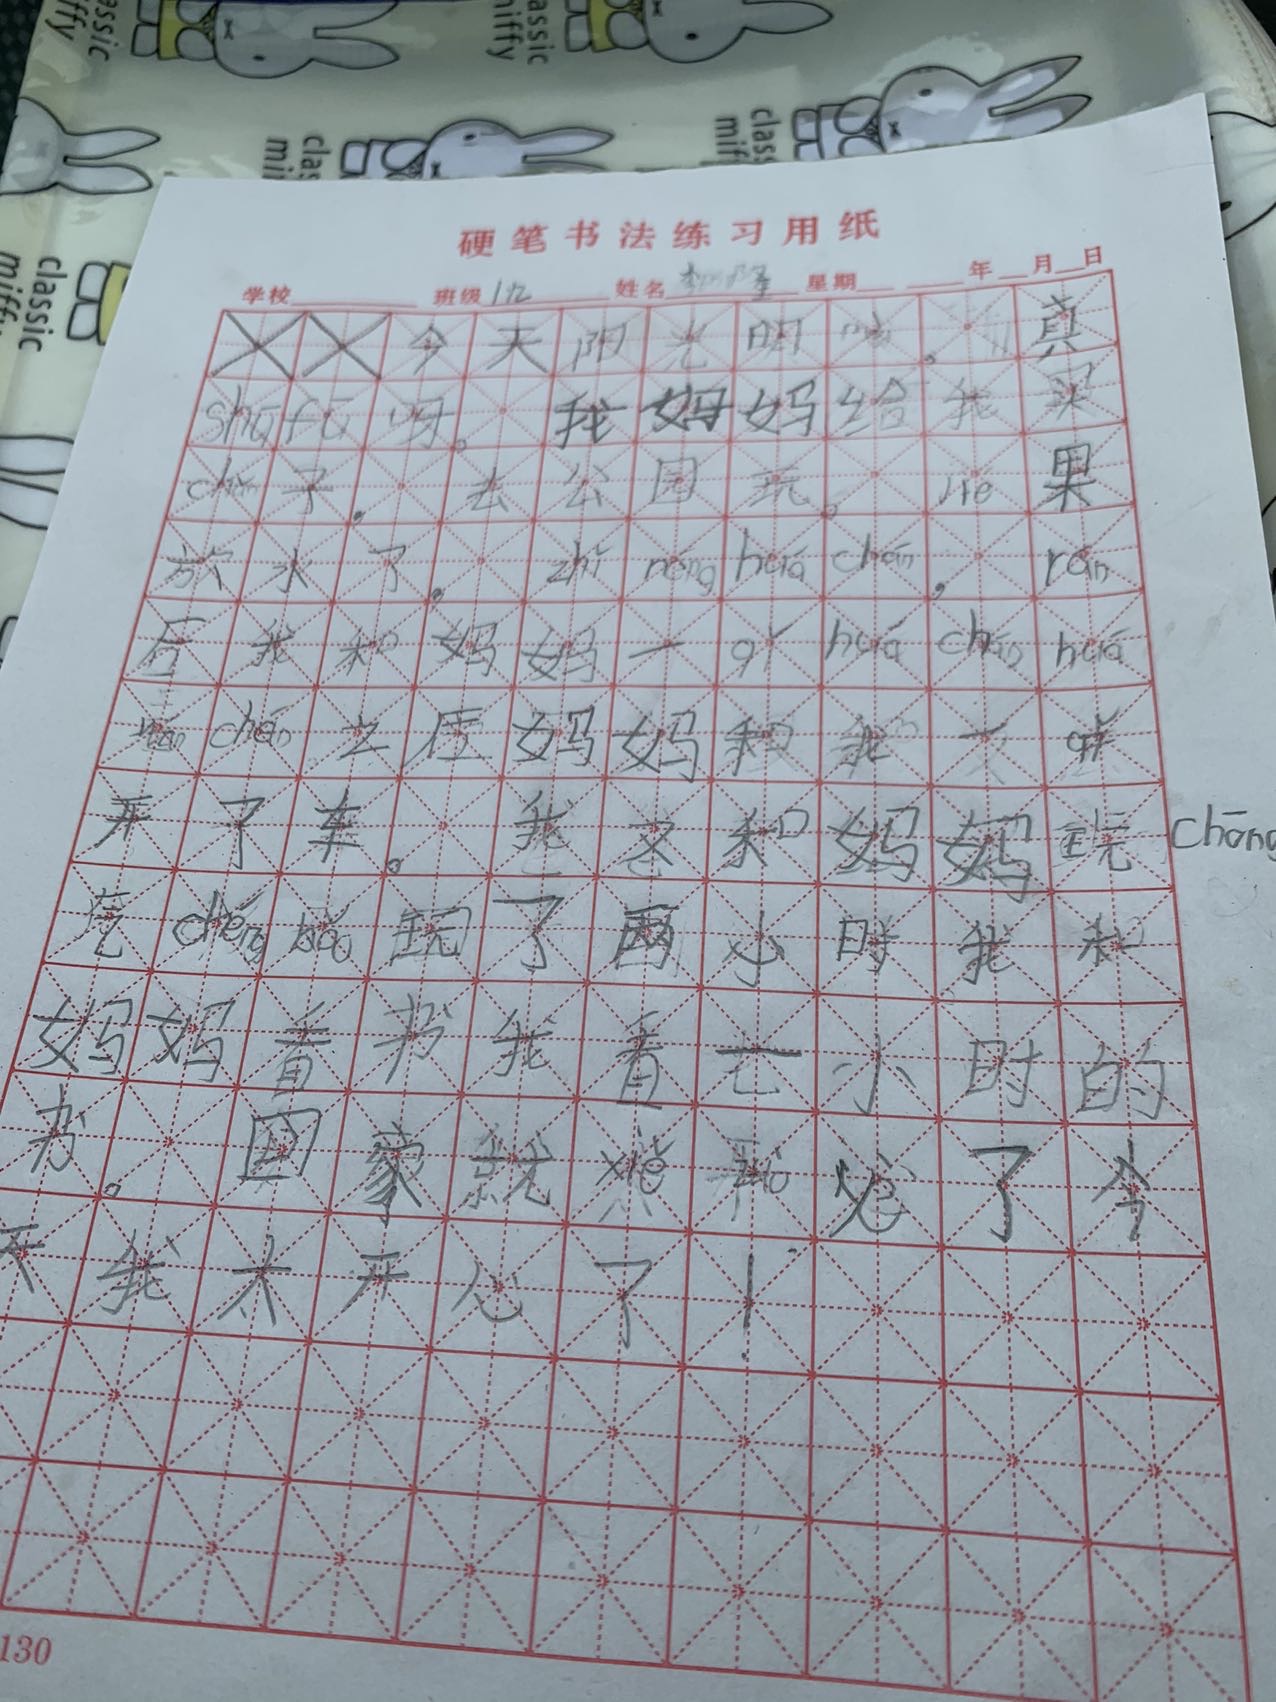 classic miffy
classic miffy
classic miffy
classic miffy
classic miffy
硬笔书法练习用纸
学校 班级 1九 姓名 李 隆 星期 年 月 日
今天阳光明 。真
shū fū 呀。我妈妈给我买
chǎn 子，去公园玩。jié 果
放水了。zhǐ néng huá chán，rán
后我和妈妈一 qǐ huá chán huá
chán 之后妈妈和我一 qǐ
开了车。我 和妈妈玩 chōng
气 chéng bǎo 玩了两小时我和
妈妈看书我看七小时的
书。回家就 xiě 了今
天我太开心了！
130